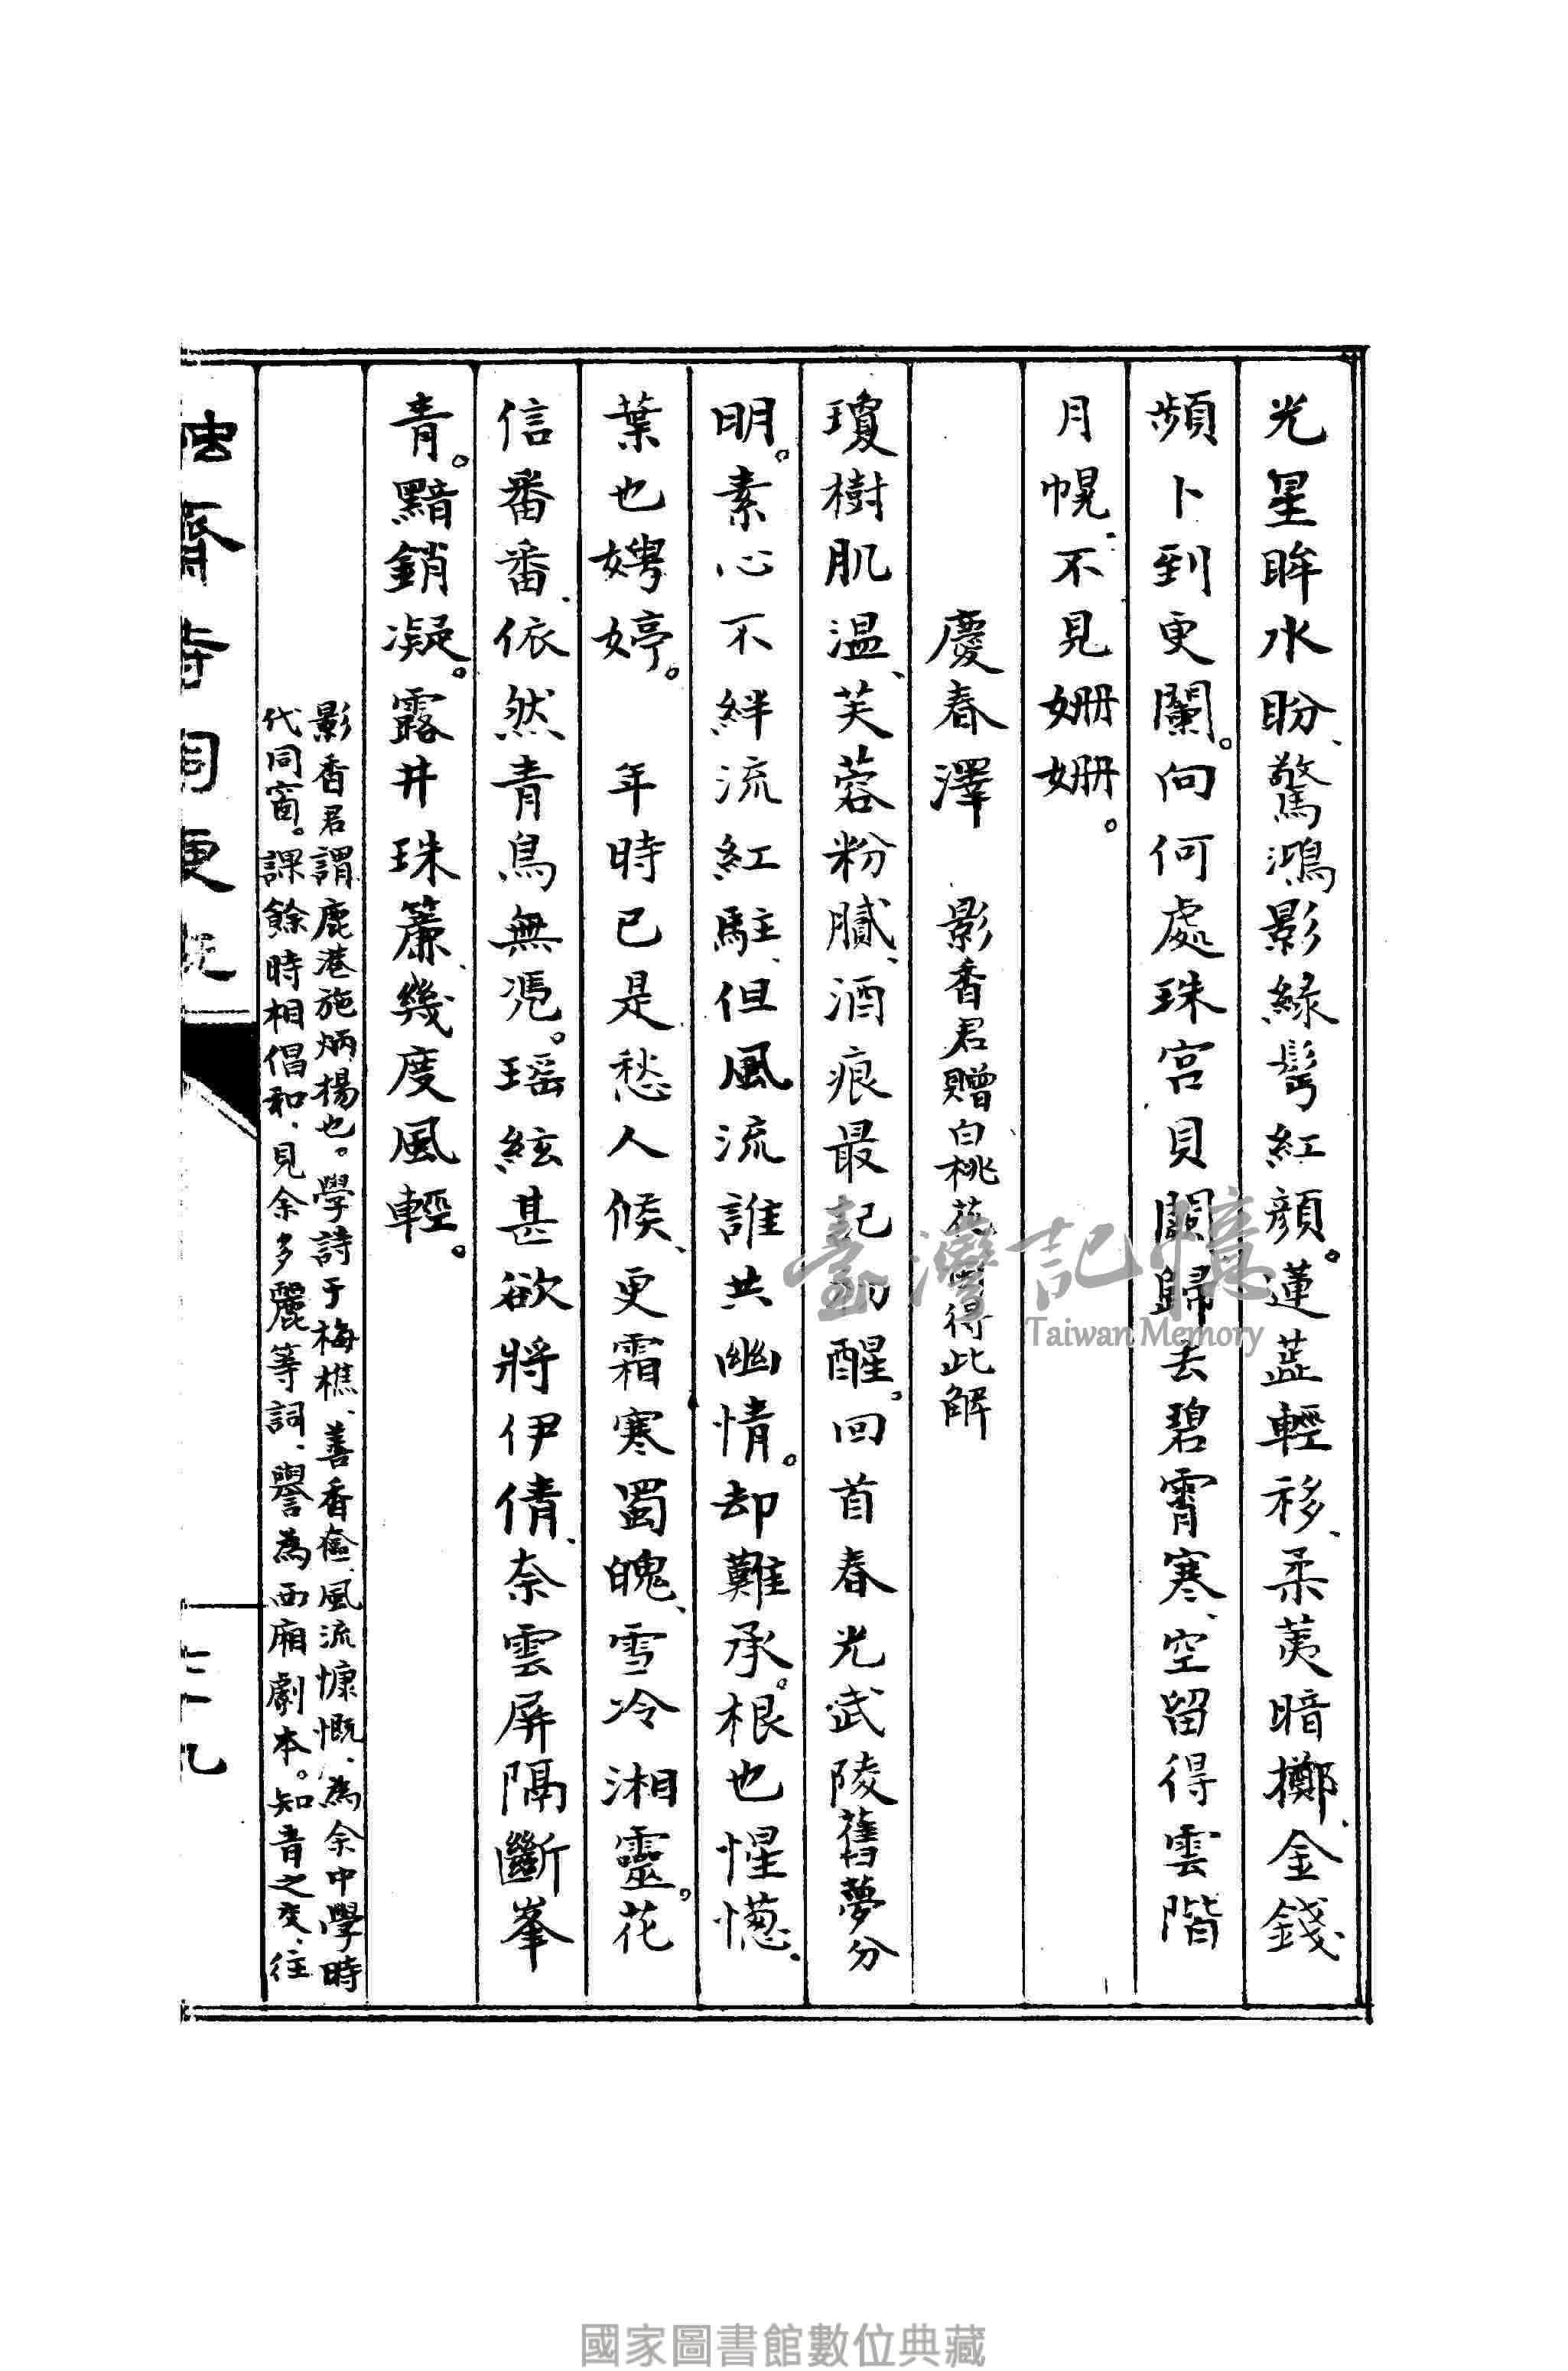 光星眸水盼、驚鴻影綠鬢紅顏。蓮蕋輕移、柔荑暗擲、金錢
頻卜到更闌。向何處珠宮貝闕歸去碧霄寒、空留得雲階
月幌、不見姍姍。
慶春澤　影香君贈白桃花得此解
瓊樹肌溫、芙蓉粉膩、酒痕最記初醒。回首春光武陵舊夢分
明。素心不絆流紅駐、但風流誰共幽情。却難承。根也惺憁、
葉也娉婷。　年時已是愁人候、更霜寒蜀魄、雪冷湘靈。花
信番番、依然青鳥無凭。瑶絃甚欲將伊倩、奈雲屏隔斷峯
青。黯銷凝。露井珠簾、幾度風輕。
影香君謂鹿港施炳揚也。學詩于梅樵、善香奩、風流慷慨、為余中學時
代同窗。課餘時相倡和、見余多麗等詞、譽為西廂劇本。知音之交、往
齋詩詞更
臺灣記憶
Taiwan Memory
國家圖書館數位典藏